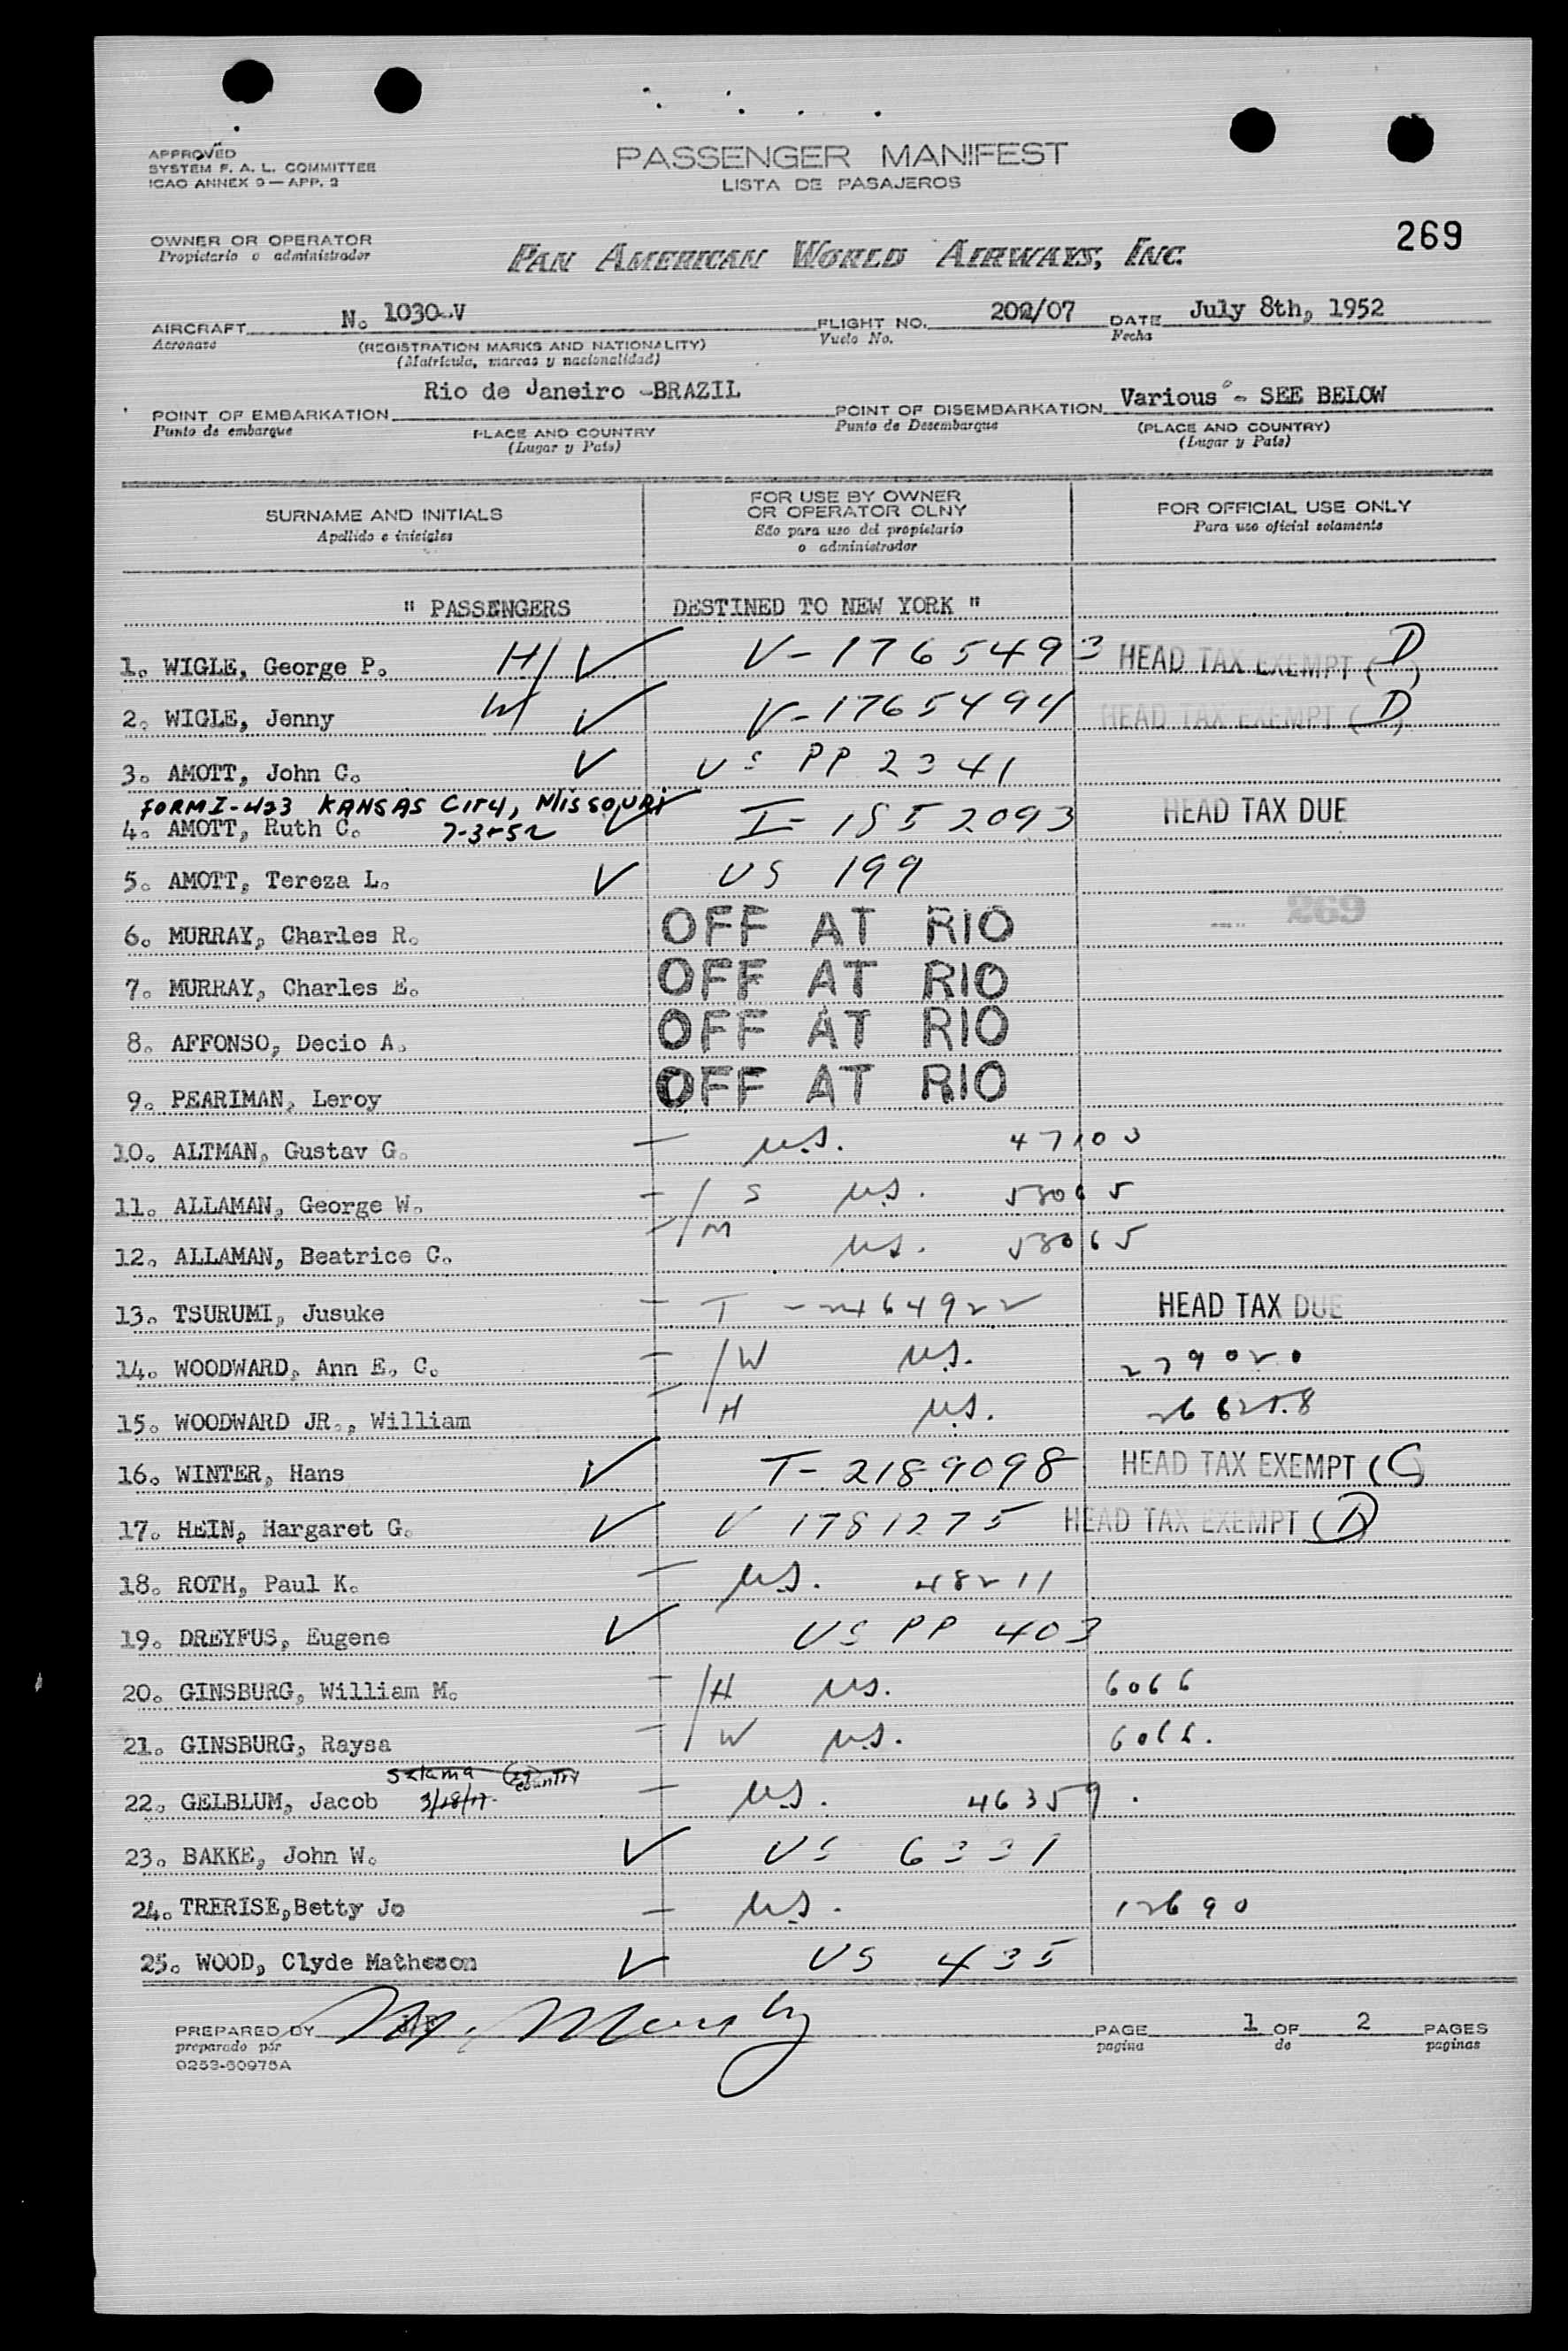 APPROVED
SYSTEM F. A. L. COMMITTEE
ICAO ANNEX 9 — APP. 2
PASSENGER MANIFEST
LISTA DE PASAJEROS
269
OWNER OR OPERATOR
Propietario o administrador
PAN AMERICAN WORLD AIRWAYS, INC.
AIRCRAFT N. 1030-V FLIGHT NO. 202/07 DATE July 8th, 1952
Aeronave (REGISTRATION MARKS AND NATIONALITY) Vuelo No. Fecha
(Matricula, marcas y nacionalidad)
POINT OF EMBARKATION Rio de Janeiro -BRAZIL POINT OF DISEMBARKATION Various - SEE BELOW
Punto de embarque PLACE AND COUNTRY Punto de Desembarque (PLACE AND COUNTRY)
(Lugar y País) (Lugar y País)
SURNAME AND INITIALS FOR USE BY OWNER OR OPERATOR OLNY FOR OFFICIAL USE ONLY
Apellido e iniciales Sáo para uso del propietario o administrador Para uso oficial solamente
" PASSENGERS DESTINED TO NEW YORK "
1. WIGLE, George P. H/ ✓ V-1765493 HEAD TAX EXEMPT (D)
2. WIGLE, Jenny W/ ✓ V-1765494 HEAD TAX EXEMPT (D)
3. AMOTT, John C. ✓ US PP 2341
FORM I-423 KANSAS CITY, MISSOURI
4. AMOTT, Ruth C. 7-3-52 ✓ I-1552093 HEAD TAX DUE
5. AMOTT, Tereza L. ✓ US 199
269
6. MURRAY, Charles R. OFF AT RIO
7. MURRAY, Charles E. OFF AT RIO
8. AFFONSO, Decio A. OFF AT RIO
9. PEARIMAN, Leroy OFF AT RIO
10. ALTMAN, Gustav G. — U.S. 47103
11. ALLAMAN, George W. — / S U.S. 58065
12. ALLAMAN, Beatrice C. — / M U.S. 58065
13. TSURUMI, Jusuke — T -2464922 HEAD TAX DUE
14. WOODWARD, Ann E. C. — /W U.S. 279020
15. WOODWARD JR., William — /H U.S.
16. WINTER, Hans ✓ T- 2189098 HEAD TAX EXEMPT (C)
17. HEIN, Hargaret G. ✓ V 1781275 HEAD TAX EXEMPT (D)
18. ROTH, Paul K. — U.S. 48211
19. DREYFUS, Eugene ✓ US PP 403
20. GINSBURG, William M. — /H U.S. 6066
21. GINSBURG, Raysa — /W U.S. 6066.
22. GELBLUM, Jacob — U.S. 46359.
23. BAKKE, John W. ✓ US 6331
24. TRERISE, Betty Jo — U.S. 12690
25. WOOD, Clyde Matheson ✓ US 435
PREPARED BY PAGE 1 OF 2 PAGES
preparado por pagina de paginas
0253-60975A